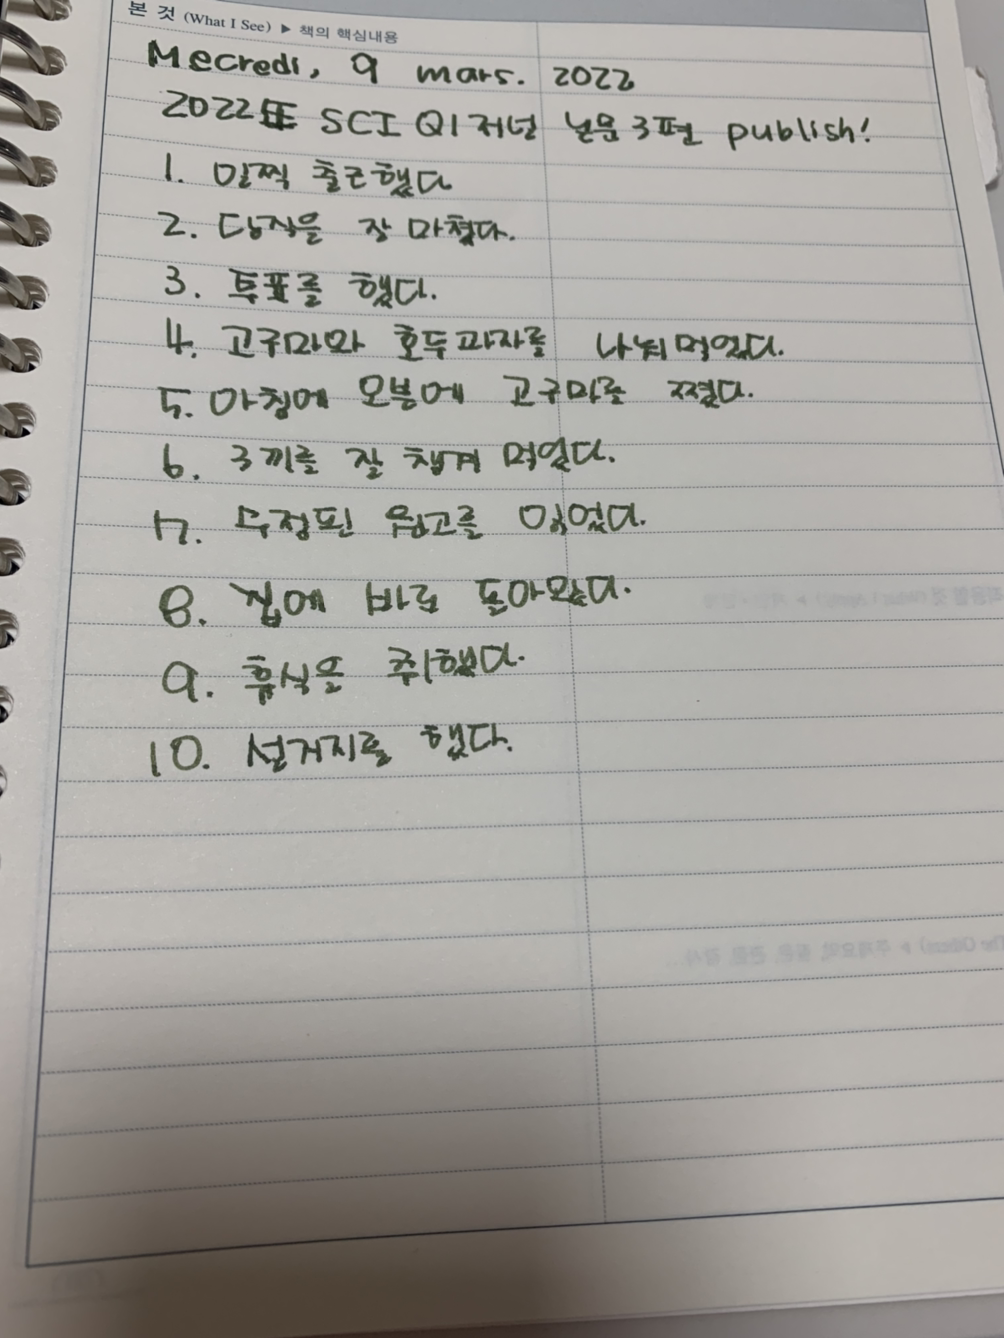 본 것 (What I See) ▶ 책의 핵심내용
Mecredi, 9 mars. 2022
2022年 SCI Q1 저널 논문 3편 publish!
1. 일찍 출근했다
2. 당직을 잘 마쳤다.
3. 투표를 했다.
4. 고구마와 호두과자를 나눠먹었다.
5. 아침에 오븐에 고구마를 쪘다.
6. 3끼를 잘 챙겨 먹었다.
7. 수정된 원고를 읽었다.
8. 집에 바로 돌아왔다.
9. 휴식을 취했다.
10. 설거지를 했다.